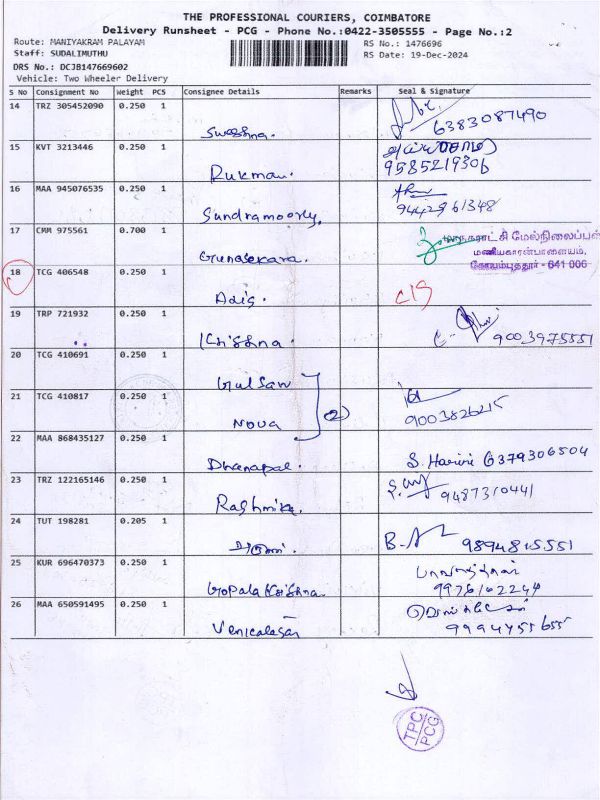 THE PROFESSIONAL COURIERS, COIMBATORE
Delivery Runsheet - PCG - Phone No.:0422-3505555 - Page No.:2
Route: MANIYAKRAM PALAYAM
RS No.: 1476696
Staff: SUDALIMUTHU
RS Date: 19-Dec-2024
DRS No.: DCJB147669602
Vehicle: Two Wheeler Delivery
S No Consignment No Weight PCS Consignee Details Remarks Seal & Signature
14 TRZ 305452090 0.250 1
6383087490
15 KVT 3213446 0.250 1
Rukman. 9585219306
16 MAA 945076535 0.250 1
Sundramoorly. 9442961348
17 CMM 975561 0.700 1
மாநகராட்சி மேல்நிலைப்பள்
மணியகாரன்பாளையம்,
Gunasekara. கோயம்புத்தூர் - 641 006
18 TCG 406548 0.250 1
19 TRP 721932 0.250 1
Krishna. 9003975551
20 TCG 410691 0.250 1
Gulsan
21 TCG 410817 0.250 1
Nova 2 9003826215
22 MAA 868435127 0.250 1
Dhanapal. S. Harini 6379306504
23 TRZ 122165146 0.250 1
Rashmika. 9487310441
24 TUT 198281 0.205 1
9894815551
25 KUR 696470373 0.250 1
Gopala Krishna 9976102244
26 MAA 650591495 0.250 1
Venkatasan 9994755655
TPC
PCG